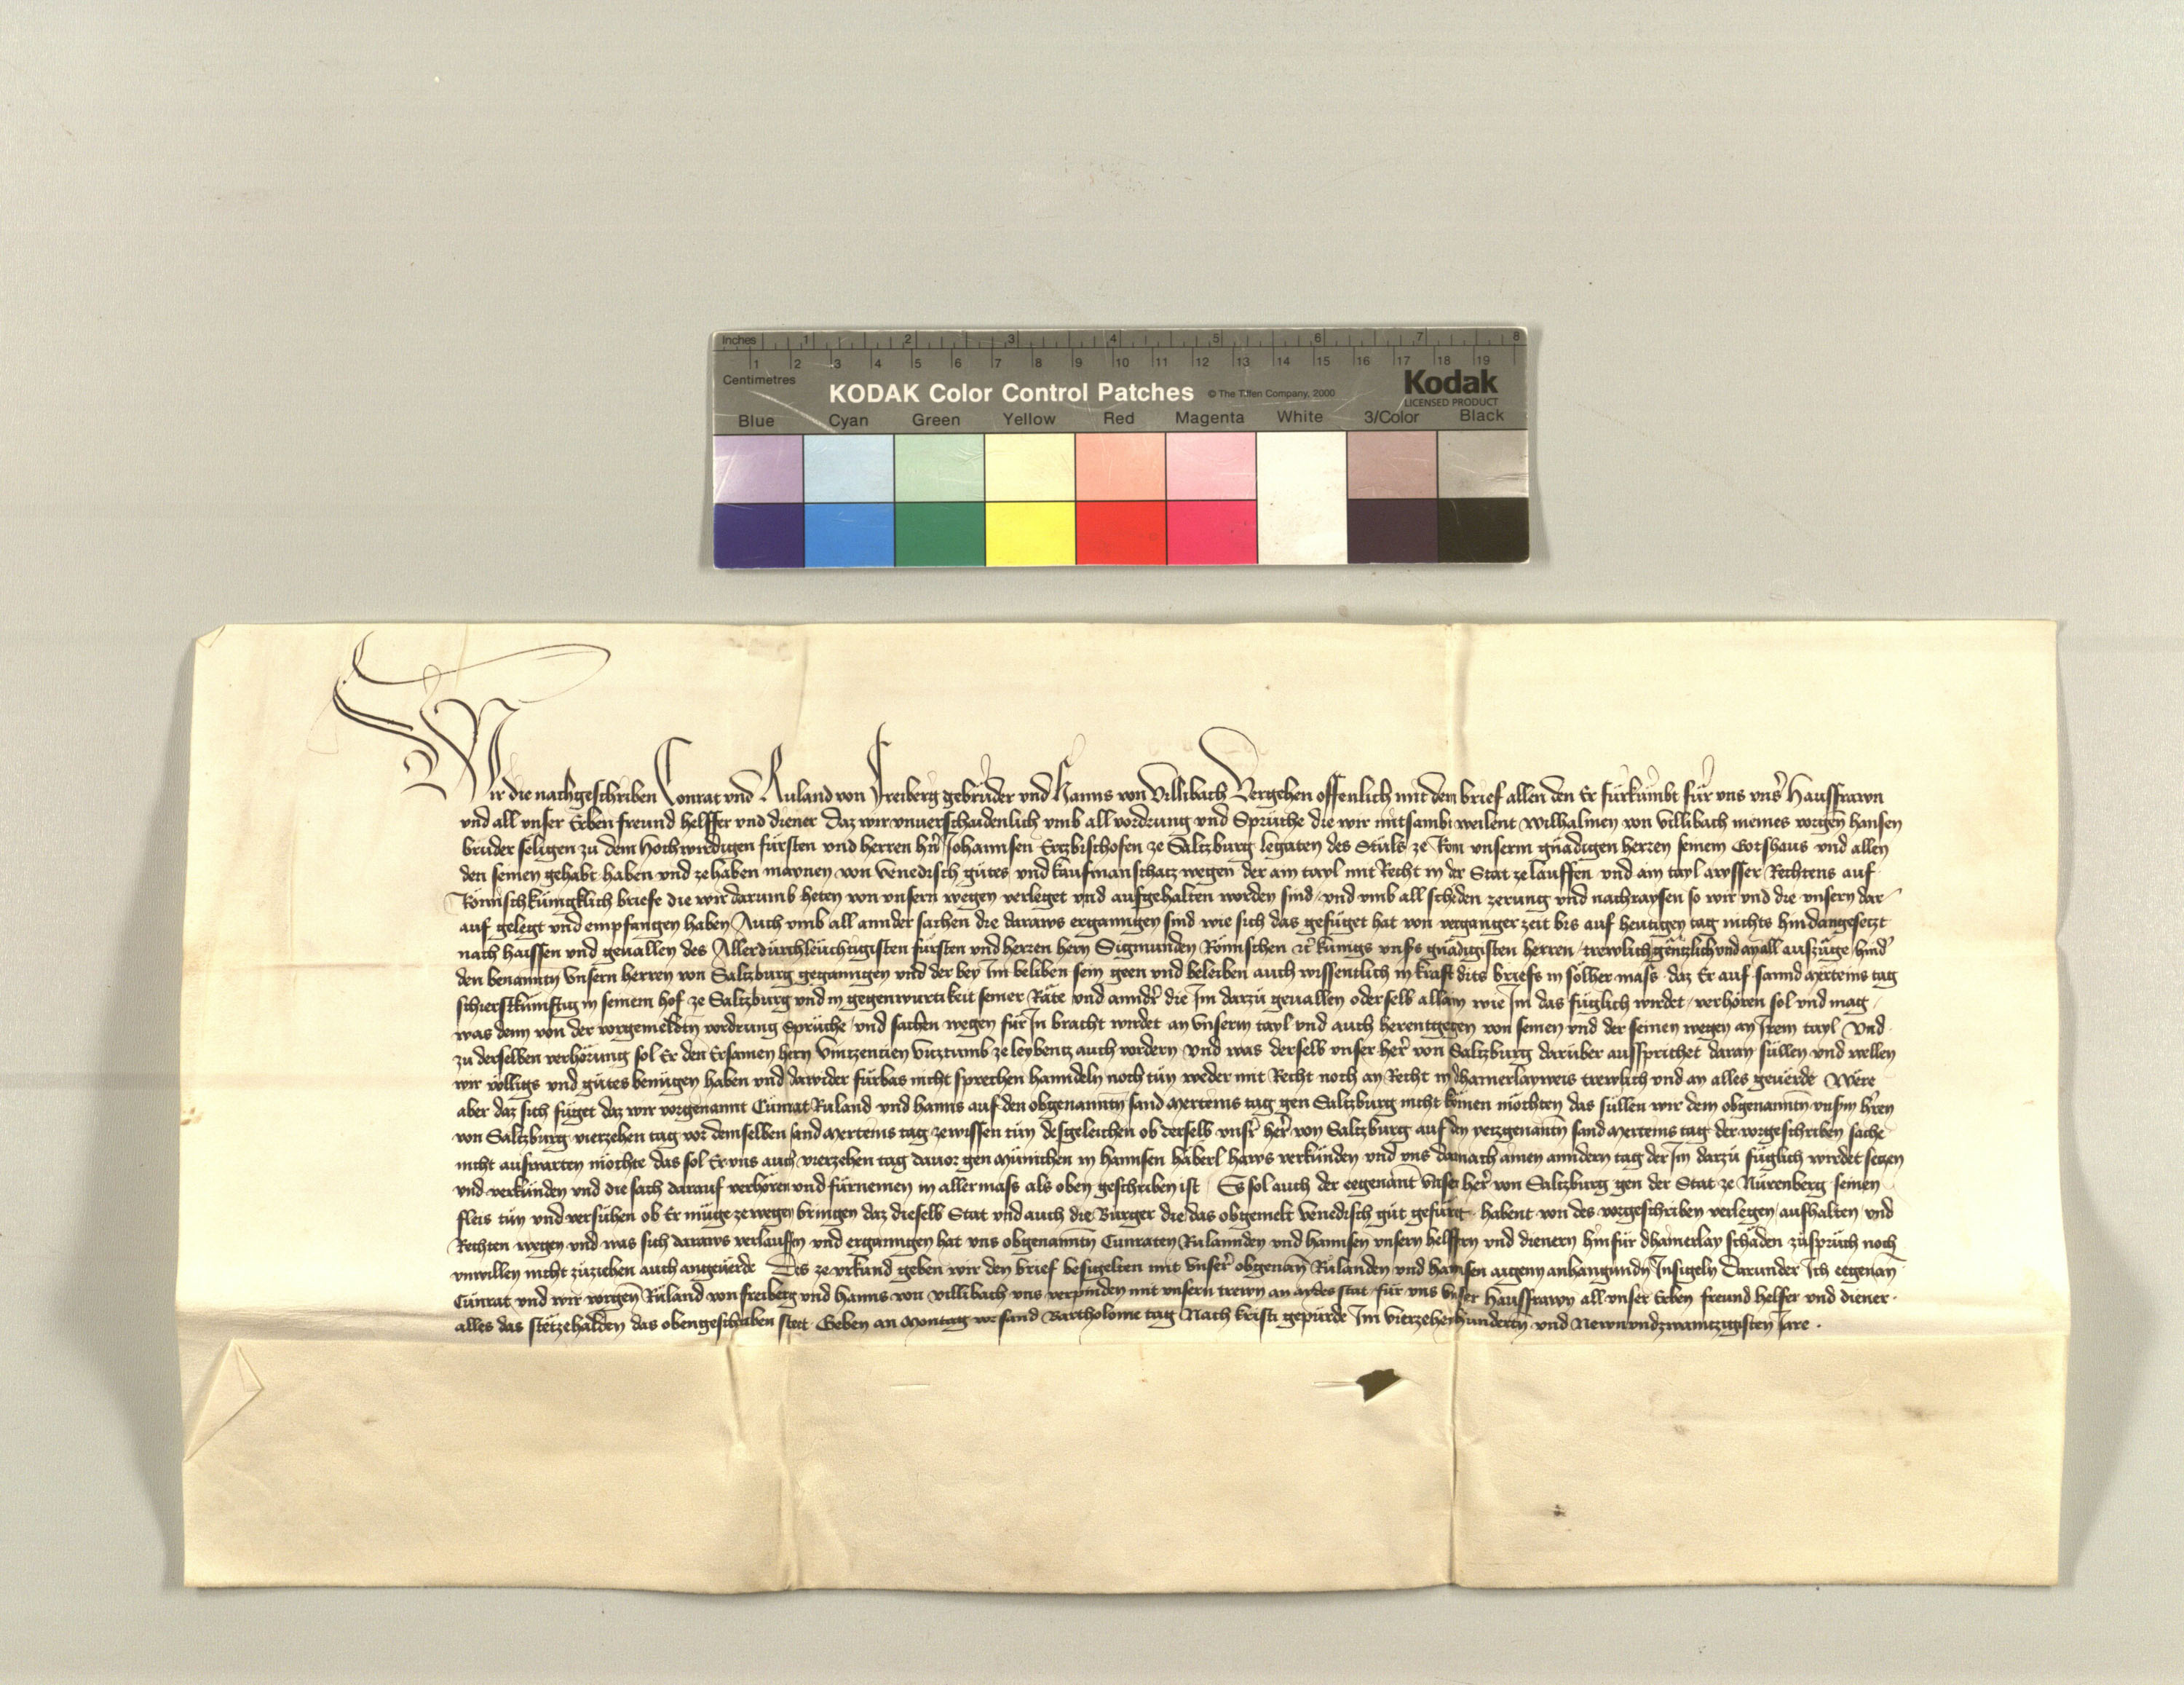 Inches 1 2 3 4 5 6 7 8
1 2 3 4 5 6 7 8 9 10 11 12 13 14 15 16 17 18 19
Centimetres
KODAK Color Control Patches © The Tiffen Company, 2000 Kodak
LICENSED PRODUCT
Blue Cyan Green Yellow Red Magenta White 3/Color Black
Wir die nachgeschriben Conrat vnd Ruland von Freiberg gebrüder vnd Hanns von Villibach Vergehen offenlich mit dem brief allen den Er fürkümbt für vns vnsr Hausfrawn
vnd all vnser Erben freund helffer vnd diener Daz wir vnuerschaidenlich vmb all vordrung vnd Sprüche die wir mitsambt weilent Wilhalmen von Villibach meines vorgen Hansen
bruder seligen zu dem Hochwirdigen fürsten vnd herren hrn Johannsen Ertzbischofen ze Saltzburg legaten des Stuls ze Rom vnserm gnädigen herren seinem Gotshaus vnd allen
den seinen gehabt haben vnd ze haben maynen von Venedisch gutes vnd kaufmanschatz wegen der ain tayl mit Recht in der Stat ze lauffen vnd ain tayl awsser Rechtens auf
Römischkünigklich briefe die wir darumb heten von vnsern wegen verleget vnd aufgehalten worden sind vnd vmb all scheden zerung vnd nachraysen so wir vnd die vnsern dar
auf gelegt vnd empfangen haben Auch vmb all annder sachen die daraws erganngen sind wie sich das gefüget hat von verganger zeit bis auf hewtigen tag nichts hindangesetzt
nach haissen vnd geuallen des Allerdurchleuchtigisten fürsten vnd herren hern Sigmunden Römischen etc künigs vnsers gnädigisten herren trewlich gentzlich vnd an all aufzüge hindr
den benannten vnsern herren von Saltzburg gegangen vnd der bey Im beliben sein geen vnd beleiben auch wissentlich in kraft dits briefs in sölher mass daz Er auf sannd Merteins tag
schierstkünftig in seinem hof ze Saltzburg vnd in gegenwürtikeit seiner Räte vnd anndr die Im darzu geuallen oder selb allain wie Im das füglich wirdet verhören sol vnd mag
was denn von der vorgemeldten vordrung Sprüche vnd sachen wegen für In bracht wirdet an vnserm tayl vnd auch herentgegen von seinen vnd der seinen wegen an Irem tayl Vnd
zu derselben verhörung sol Er den Ersamen hern Vintzentien Vitztumb ze leybentz auch vordern vnd was derselb vnser herr von Saltzburg darüber aussprichet daran süllen vnd wellen
wir völligs vnd gutes benügen haben vnd dawider fürbas nicht sprechen hanndeln noch tun weder mit Recht noch an Recht in dhainerlayweis trewlich vnd an alles geuerde Were
aber daz sich füget daz wir vorgenannt Cunrat Ruland vnd Hanns auf den obgenannten sand Merteins tag gen Saltzburg nicht komen möchten das süllen wir dem obgenannten vnserm hren
von Saltzburg vierzehen tag vor demselben sand Merteins tag ze wissen tun desgeleichen ob derselb vnsr herr von Saltzburg auf den yetzgenannten sand Merteins tag der vorgeschriben sache
nicht auswarten möchte das sol Er vns auch vierzehen tag dauor gen München in Hannsen häberl haws verkünden vnd vns darnach ainen anndern tag der Im darzu füglich wirdet setzen
vnd verkünden vnd die sach darauf verhören vnd fürnemen in aller mass als oben geschriben ist Es sol auch der eegenant vnser herr von Saltzburg gen der Stat ze Nürenberg seinen
fleis tun vnd versuhen ob Er müge ze wegen bringen daz dieselb Stat vnd auch die Burger die das obgemelt Venedisch gut gefürt habent von des vorgeschriben verlegen aufhalten vnd
Rechten wegen vnd was sich daraws verlauffen vnd erganngen hat vns obgenannten Cunraten Rulannden vnd Hannsen vnsern helffern vnd dienern hinfür dhainerlay schaden zuspruch noch
vnwillen nicht zuziehen auch angeuerde Des ze vrkund geben wir den brief besigelten mit vnserr obgenan Rulanden vnd Hannsen aigenn anhangunden Insigeln darunder Ich eegenan
Cunrat vnd wir vorgen Ruland von freiberg vnd Hanns von Villibach vns verpinden mit vnsern trewn an aydes stat für vns vnser Hausfrawn all vnser Erben freund helfer vnd diener
alles das stet ze halden das obengeschriben stet Geben an Montag vor sand Bartholome tag Nach kristi gepurde Im vierzehenhunderten vnd Newnvndzwaintzigisten Jare.